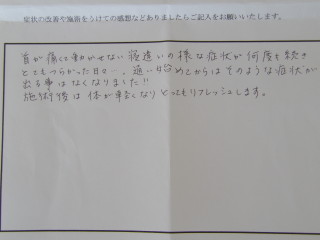 症状の改善や施術をうけての感想などありましたらご記入をお願いいたします。
首が痛くて動かせない寝違いの様な症状が何度も続き
とてもつらかった日々…、通い始めてからはそのような症状が
出る事はなくなりました!!
施術後は体が軽くなりとってもリフレッシュします。